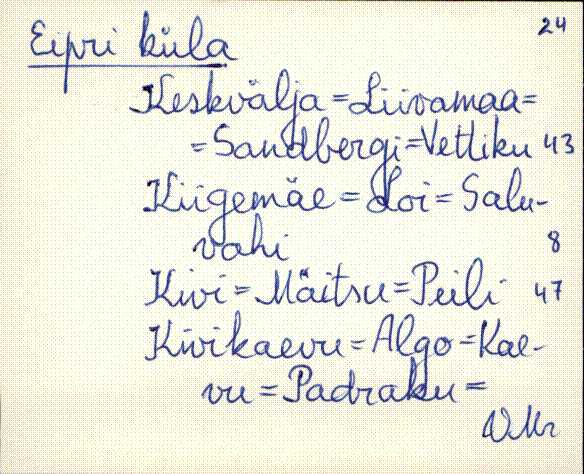 24
Eipri küla
Keskvälja = Liivamaa =
= Sandbergi = Vetliku 43
Kiigemäe = Loi = Salu-
vahi 8
Kivi = Mäitsu = Peili 47
Kivikaevu = Algo = Kae-
vu = Padraku =